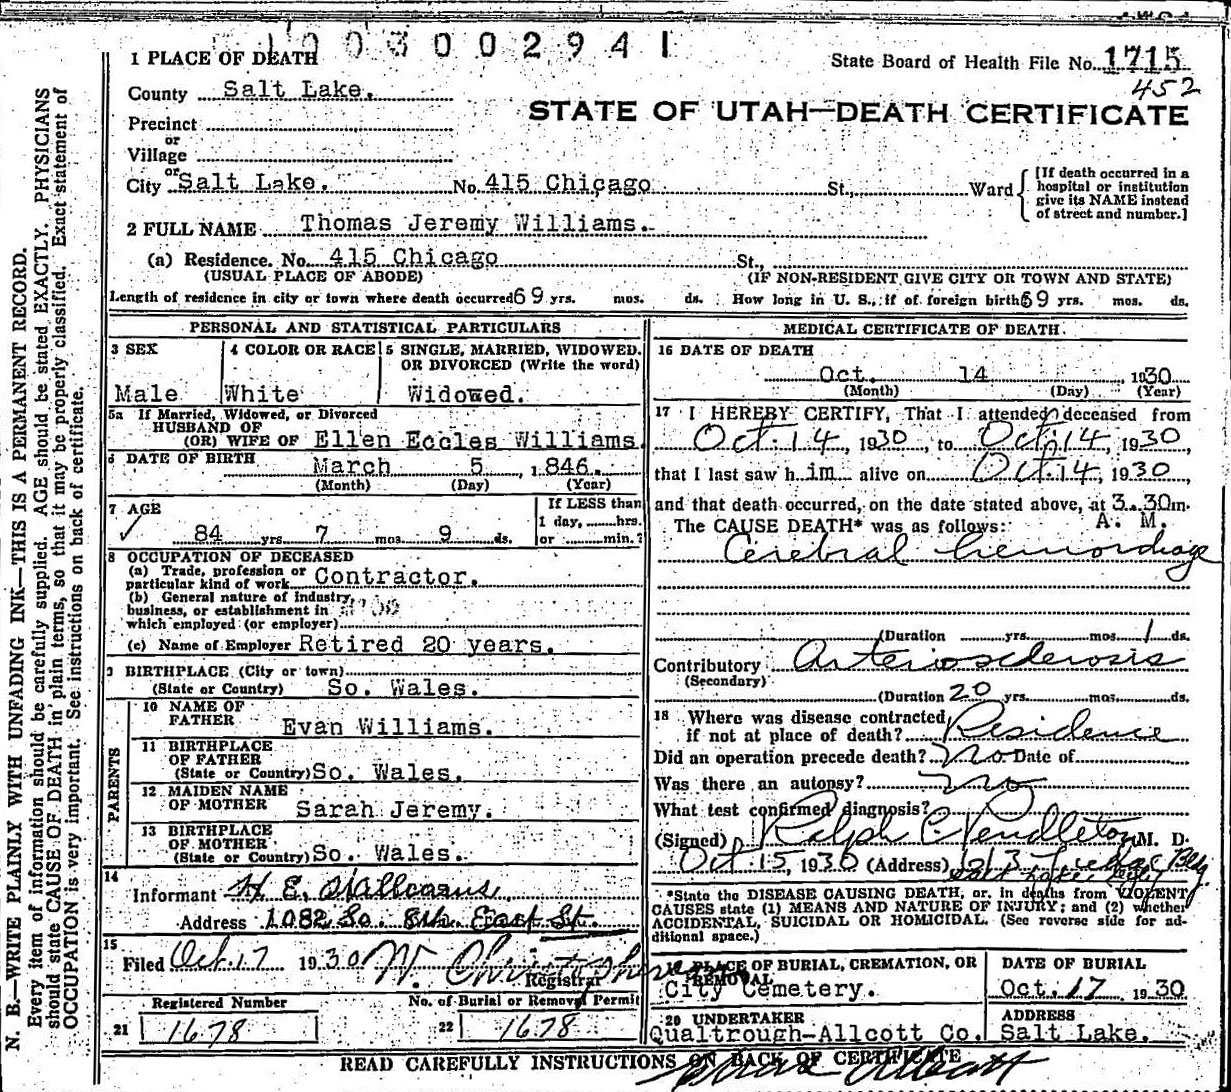 1003002941
1 PLACE OF DEATH
State Board of Health File No. 1715
452
County Salt Lake.
STATE OF UTAH—DEATH CERTIFICATE
Precinct
or
Village
or
City Salt Lake. No. 415 Chicago St., Ward
[If death occurred in a
hospital or institution
give its NAME instead
of street and number.]
2 FULL NAME Thomas Jeremy Williams.
(a) Residence. No. 415 Chicago St.,
(USUAL PLACE OF ABODE) (IF NON-RESIDENT GIVE CITY OR TOWN AND STATE)
Length of residence in city or town where death occurred 69 yrs. mos. ds. How long in U. S., if of foreign birth 69 yrs. mos. ds.
PERSONAL AND STATISTICAL PARTICULARS
3 SEX
Male
4 COLOR OR RACE
White
5 SINGLE, MARRIED, WIDOWED,
OR DIVORCED (Write the word)
Widowed.
5a If Married, Widowed, or Divorced
HUSBAND OF
(OR) WIFE OF Ellen Eccles Williams.
6 DATE OF BIRTH
March 5 1846.
(Month) (Day) (Year)
7 AGE
84 yrs. 7 mos. 9 ds.
If LESS than
1 day, hrs.
or min.?
8 OCCUPATION OF DECEASED
(a) Trade, profession or
particular kind of work Contractor.
(b) General nature of industry,
business, or establishment in
which employed (or employer)
(c) Name of Employer Retired 20 years.
9 BIRTHPLACE (City or town)
(State or Country) So. Wales.
PARENTS
10 NAME OF
FATHER Evan Williams.
11 BIRTHPLACE
OF FATHER
(State or Country) So. Wales.
12 MAIDEN NAME
OF MOTHER Sarah Jeremy.
13 BIRTHPLACE
OF MOTHER
(State or Country) So. Wales.
14
Informant H. E.
Address 1082 So. 8th. East St.
15
Filed Oct. 17 1930
Registrar
Registered Number
21 1678
No. of Burial or Removal Permit
22 1678
MEDICAL CERTIFICATE OF DEATH
16 DATE OF DEATH
Oct. 14 1930
(Month) (Day) (Year)
17 I HEREBY CERTIFY, That I attended deceased from
Oct. 14, 1930, to Oct. 14, 1930
that I last saw h im alive on Oct. 14, 1930
and that death occurred, on the date stated above, at 3.30m.
The CAUSE DEATH* was as follows: A. M.
Cerebral hemorrhage
(Duration yrs. mos. 1 ds.
Contributory Arteriosclerosis
(Secondary)
(Duration 20 yrs. mos. ds.
18 Where was disease contracted,
if not at place of death? Residence
Did an operation precede death? No. Date of
Was there an autopsy? No
What test confirmed diagnosis?
(Signed) Ralph C. Pendleton M. D.
Oct. 15, 1930 (Address) 213 Bldg.
*State the DISEASE CAUSING DEATH, or, in deaths from VIOLENT
CAUSES state (1) MEANS AND NATURE OF INJURY; and (2) whether
ACCIDENTAL, SUICIDAL OR HOMICIDAL. (See reverse side for ad-
ditional space.)
PLACE OF BURIAL, CREMATION, OR
REMOVAL
City Cemetery.
DATE OF BURIAL
Oct. 17 1930
20 UNDERTAKER
Qualtrough-Allcott Co.
ADDRESS
Salt Lake.
READ CAREFULLY INSTRUCTIONS ON BACK OF CERTIFICATE
N. B.—WRITE PLAINLY WITH UNFADING INK—THIS IS A PERMANENT RECORD.
Every item of information should be carefully supplied. AGE should be stated EXACTLY. PHYSICIANS
should state CAUSE OF DEATH in plain terms, so that it may be properly classified. Exact statement of
OCCUPATION is very important. See instructions on back of certificate.